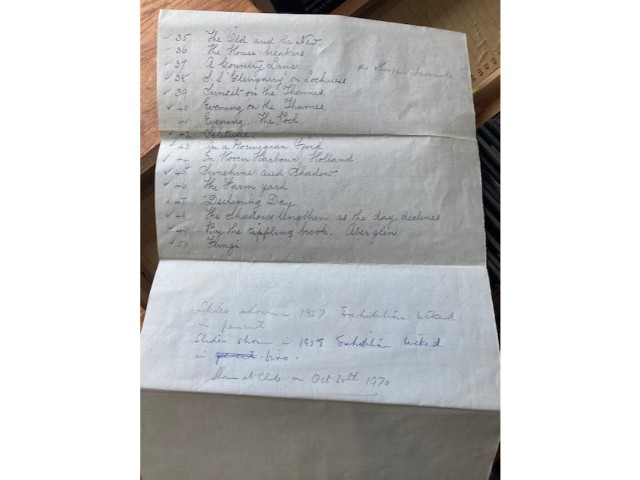 ✓ 35 The Old and the New.
- 36 The House-breakers
✓ 37 A Country Lane
✓ 38 S.S "Glengarry" on Lochness
✓ 39 Sunset on the Thames
✓ 40 Evening on the Thames
41 Evening. The Pool.
✓ 42 Solitude
✓ 43 In a Norwegian Fjord
✓ 44 In Hoorn Harbour, Holland
✓ 45 Sunshine and Shadow
✓ 46 The Farm yard
✓ 47 Declining Day
✓ 48 The shadows lengthen as the day declines
✓ 49 By the rippling brook. Aberglen
✓ 50 Fungi
Slides shown in Exhibition ticked
in pencil
Slides shown in Exhibition ticked
in pencil biro.
Shown at Club on Oct 20th 1970